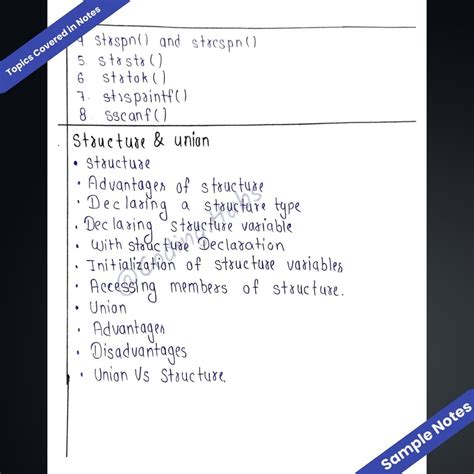 Topics Covered in Notes
4 strspn() and strcspn()
5. strstr()
6 strtok()
7. strsprintf()
8 sscanf()
Structure & union
• Structure
• Advantages of structure
• Declaring a structure type
• Declaring structure variable
• With structure Declaration
• Initialization of structure variables
• Accessing members of structure.
• Union
• Advantages
• Disadvantages
• Union Vs Structure.
@Coding_Hubs
Sample Notes